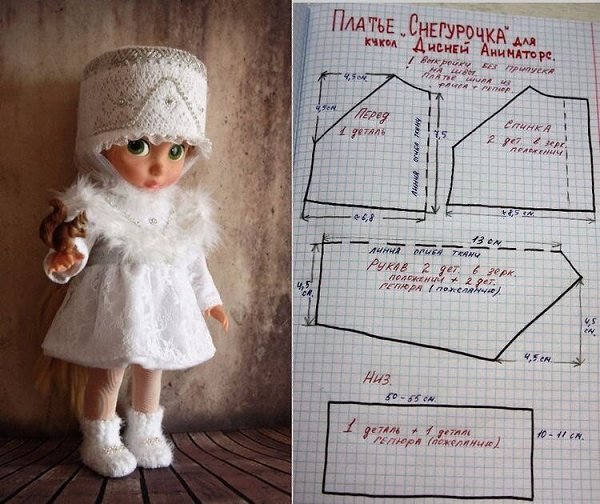 Платье „Снегурочка" для
кукол Дисней Аниматорс.
! Выкройки без припуска
на швы.
Платье шила из
флиса + гепюр.
4,5см.
4,5см.
Перед
1 деталь
линия сгиба ткани
7,5
≈ 6,8
Спинка
2 дет. в зерк.
положении
≈ 8,5 см.
13 см.
линия сгиба ткани
Рукав 2 дет. в зерк.
положении + 2 дет.
гепюра (по желанию).
4,5
см.
4,5
см.
4,5 см.
Низ.
50-55 см.
1 деталь + 1 деталь
гепюра (по желанию)
10-11 см.